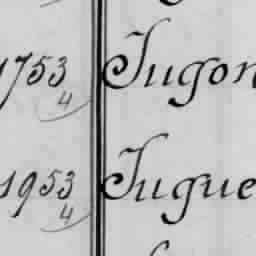 1753 Jugon
4
1953 Jugue
4